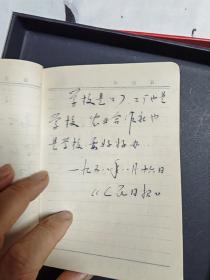 学校是工厂 工厂也是
学校 农业合作社也
是学校 要好好办
一九五八年八月十六日
《人民日报》